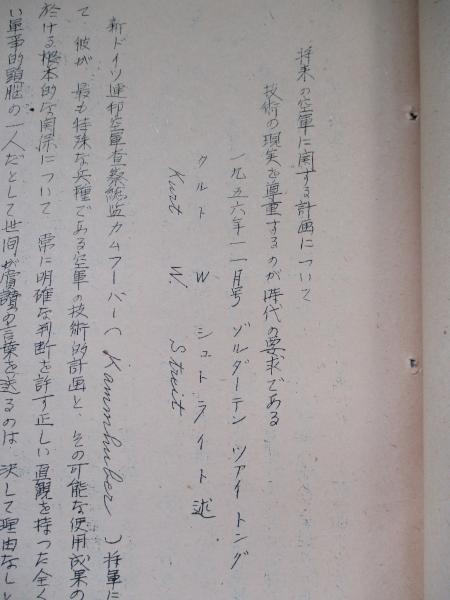 将来の空軍に関する計画について
技術の現実を尊重するのが時代の要求である
一九五六年一一月号 ゾルダーテン ツアイトング
クルト W シュトライト 述
Kurt W. Streit
新ドイツ連邦空軍査察総監カムフーバー( Kammhuber )将軍に
て、彼が、最も特殊な兵種である空軍の技術的計画と、その可能な使用成果の
於ける根本的な関係について、常に明確な判断を許す正しい直観を持った全く
い軍事的頭脳の一人だとして世間が賞讃の言葉を送るのは、決して理由なしと